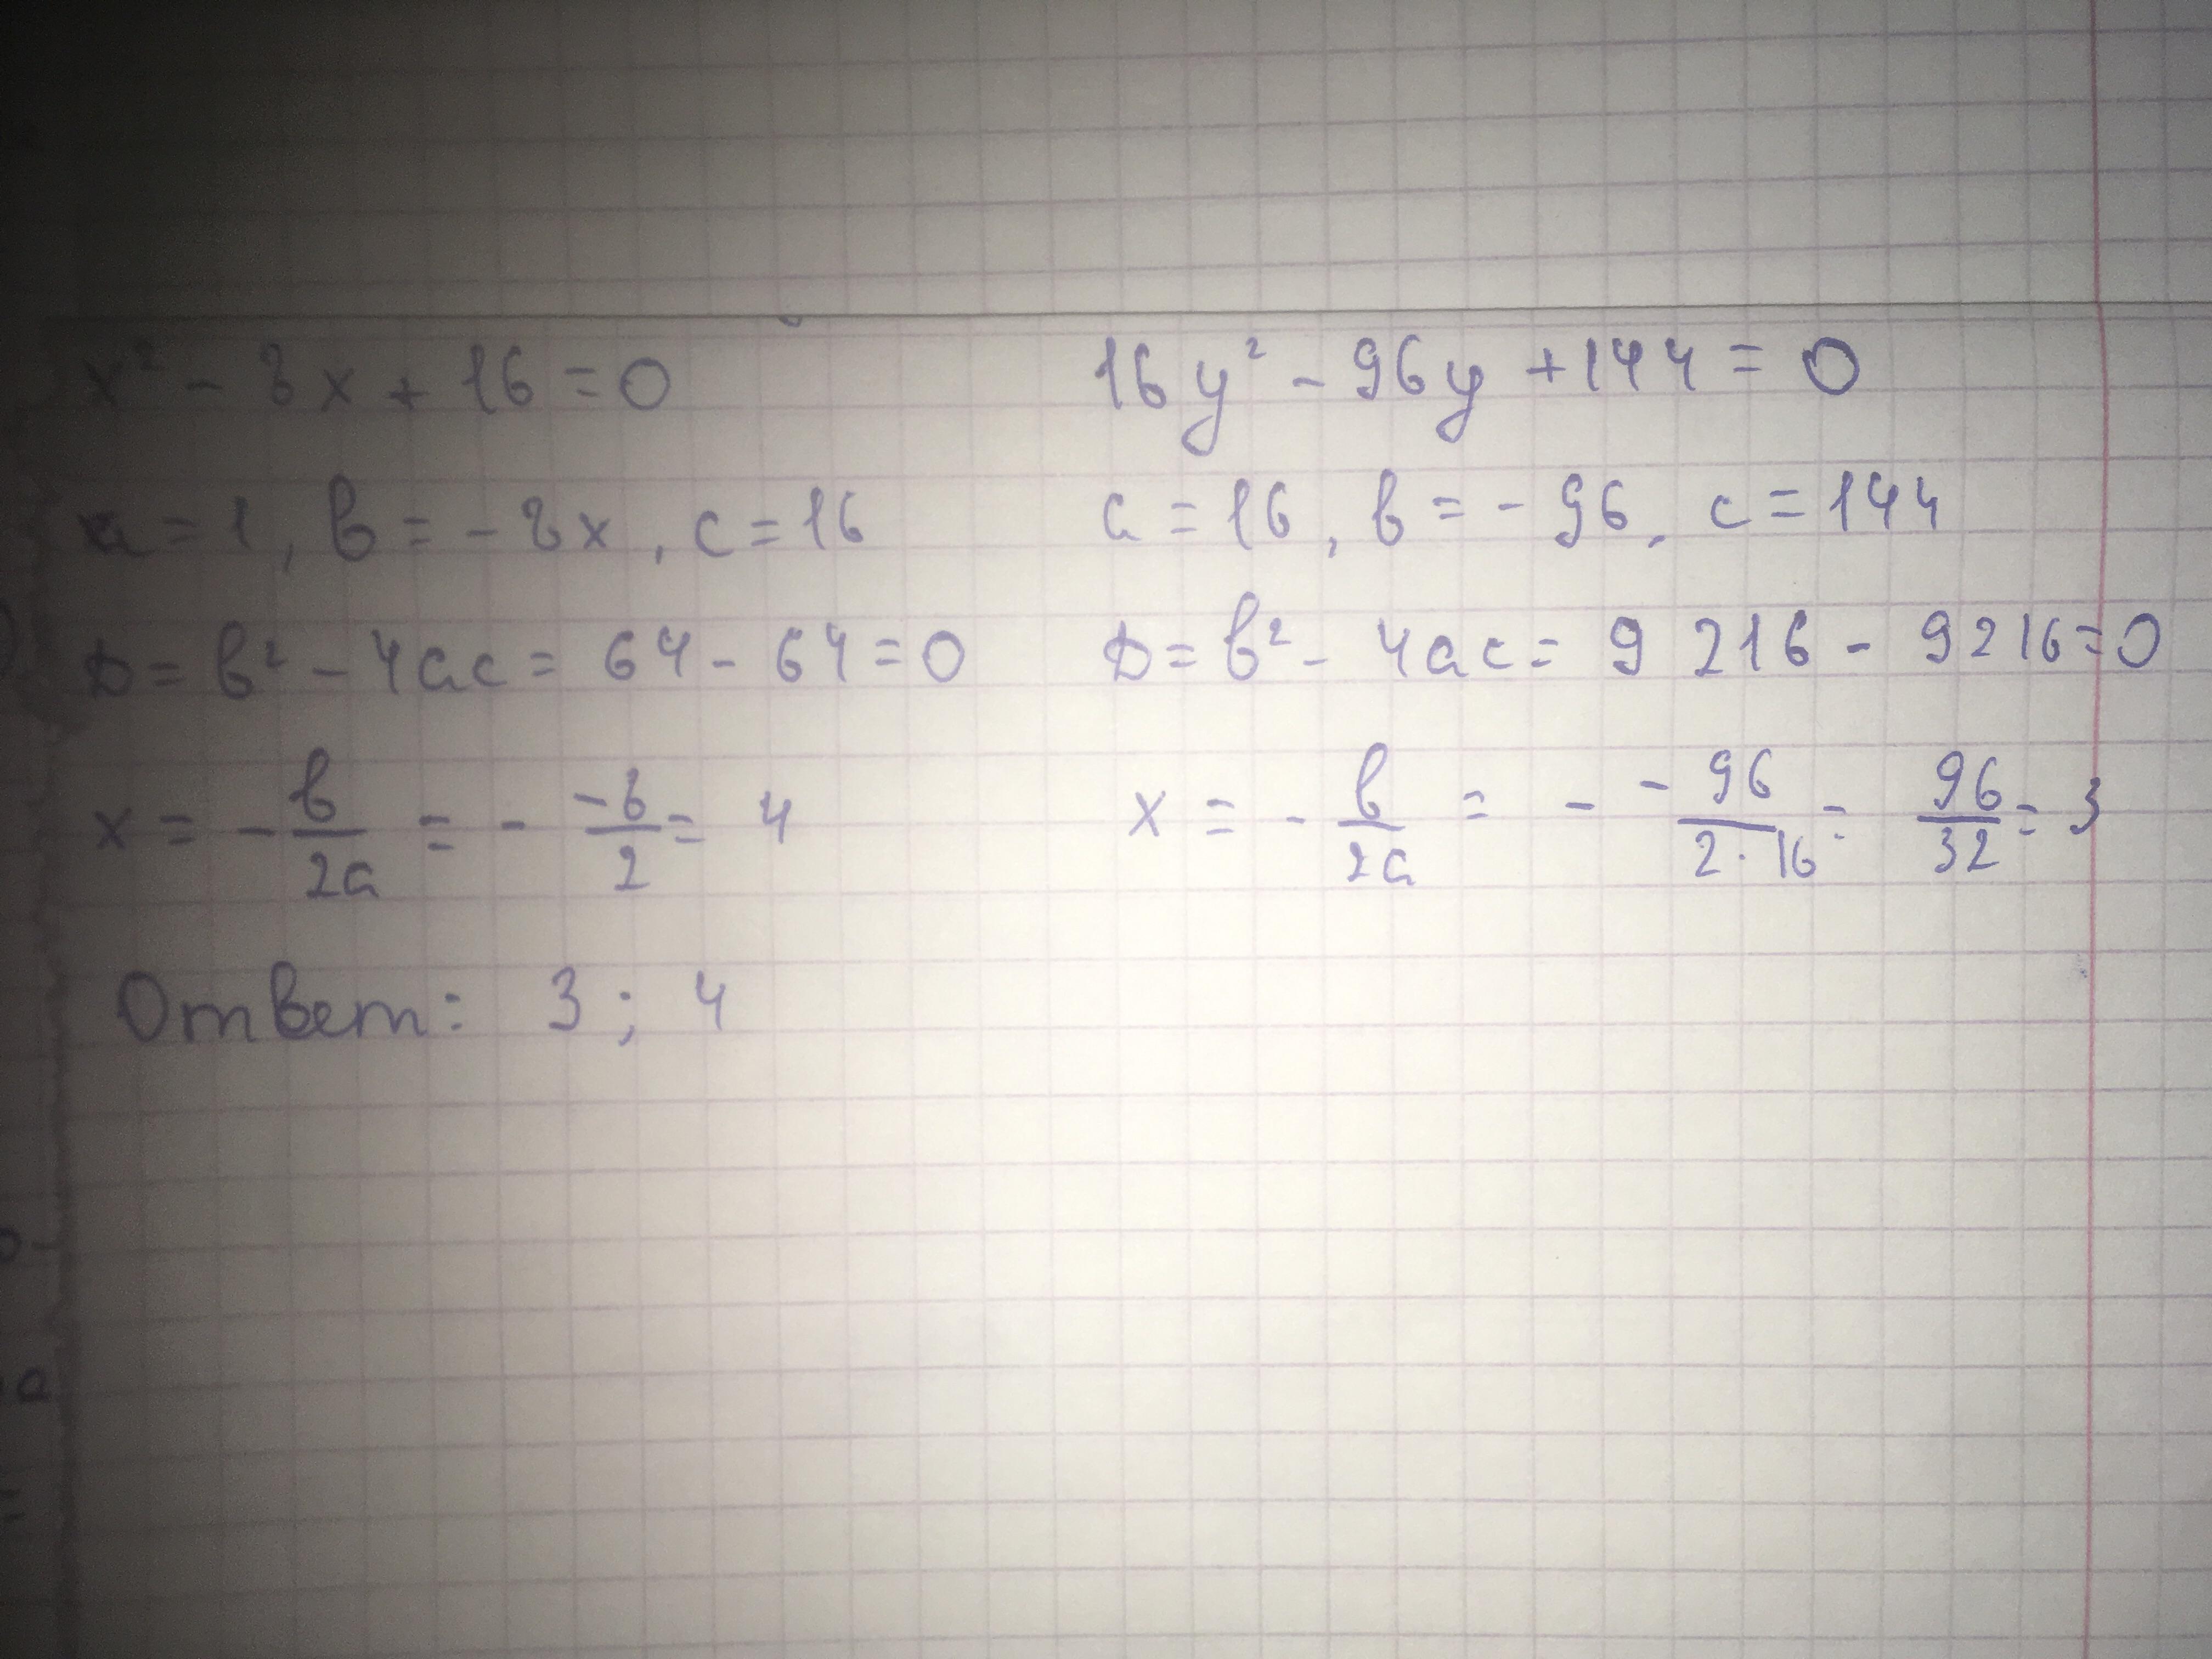 x² - 8x + 16 = 0
a = 1, b = -8x, c = 16
D = b² - 4ac = 64 - 64 = 0
x = - b/2a = - -8/2 = 4
Ответ: 3; 4
16y² - 96y + 144 = 0
a = 16, b = -96, c = 144
D = b² - 4ac = 9 216 - 9216 = 0
x = - b/2a = - -96/2·16 = 96/32 = 3